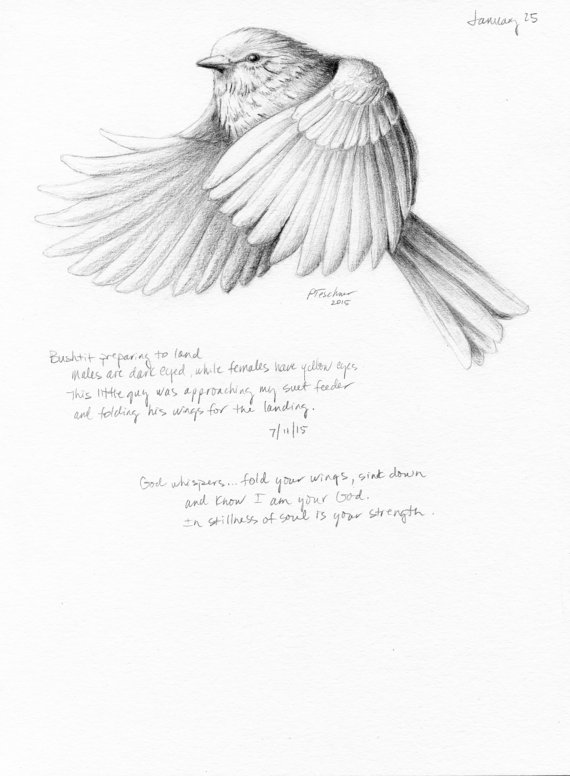 January 25
PTeschner
2015
Bushtit preparing to land
males are dark eyed, while females have yellow eyes.
This little guy was approaching my suet feeder
and folding his wings for the landing.
7/11/15
God whispers... fold your wings, sink down
and know I am your God.
In stillness of soul is your strength.